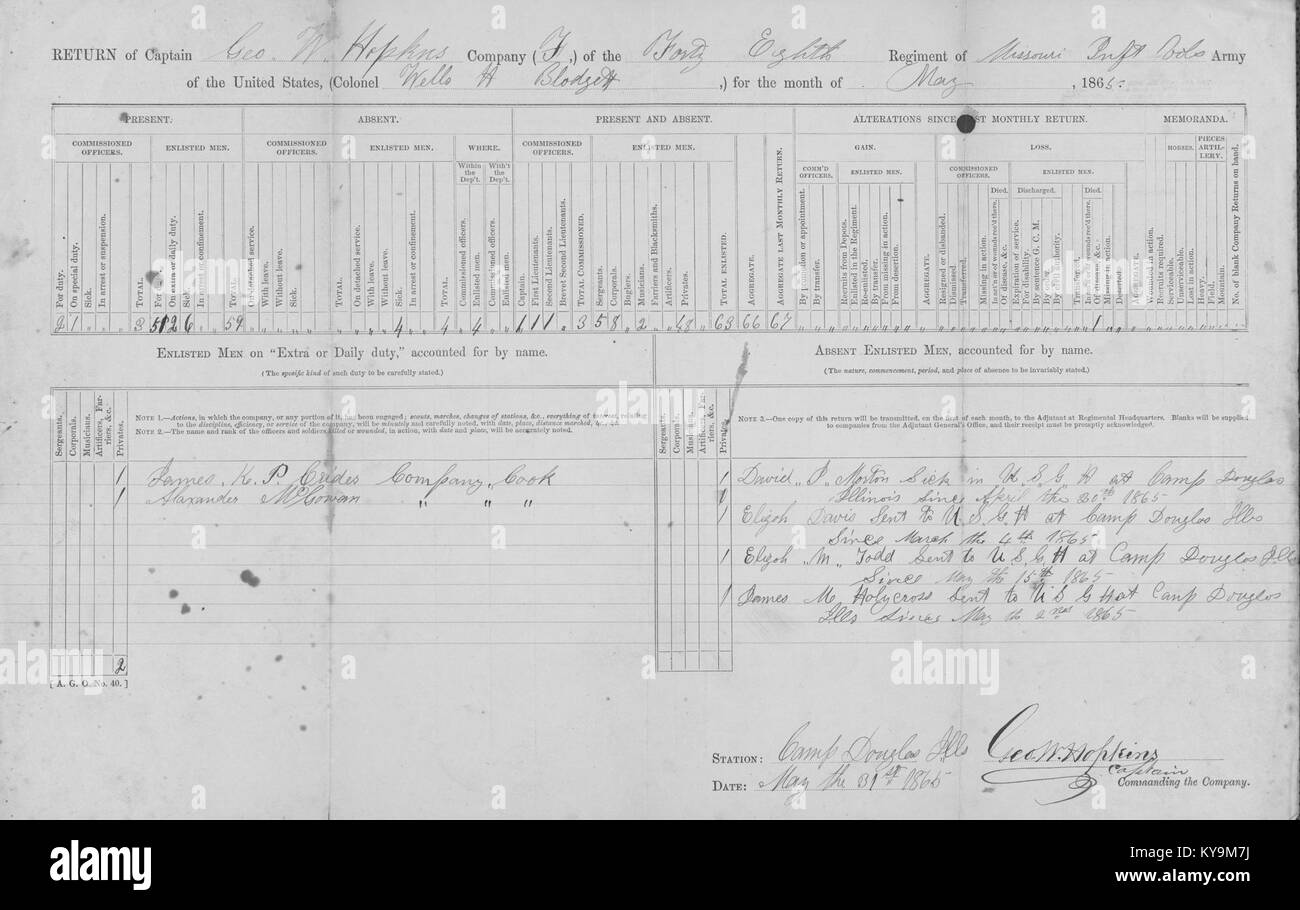 RETURN of Captain Geo. W. Hopkns Company (F,) of the Forty Eighth Regiment of Missouri Inft Vols Army
of the United States, (Colonel Wells H Blodgett ,) for the month of May , 1865.
PRESENT. ABSENT. PRESENT AND ABSENT. ALTERATIONS SINCE LAST MONTHLY RETURN. MEMORANDA.
COMMISSIONED OFFICERS. ENLISTED MEN. COMMISSIONED OFFICERS. ENLISTED MEN. WHERE. COMMISSIONED OFFICERS. ENLISTED MEN. GAIN. LOSS. HORSES. PIECES ARTILLERY.
Within the Dep't. With't the Dep't. COMM'D OFFICERS. ENLISTED MEN. COMMISSIONED OFFICERS. ENLISTED MEN.
Died. Discharged. Died.
For duty. On special duty. Sick. In arrest or suspension. TOTAL For duty. On extra or daily duty. Sick In arrest or confinement. TOTAL.
On detached service. With leave. Without leave. Sick. TOTAL. On detached service. With leave. Without leave. Sick. In arrest or confinement. TOTAL.
Commissioned officers. Enlisted men. Commissioned officers. Enlisted men.
Captain. First Lieutenants. Second Lieutenants. Brevet Second Lieutenants. TOTAL COMMISSIONED. Sergeants. Corporals. Buglers. Musicians. Farriers and Blacksmiths. Artificers. Privates. TOTAL ENLISTED. AGGREGATE. AGGREGATE LAST MONTHLY RETURN.
By promotion or appointment. By transfer. Recruits from Depots. Enlisted in the Regiment. Re-enlisted. By transfer. From missing in action. From desertion. AGGREGATE.
Resigned or disbanded. Transferred. Missing in action. Of disease, &c. Expiration of service. For disability. By sentence G. C. M. Of disease, &c. Missing in action. Deserted. AGGREGATE.
Wounded in action. Recruits required. Serviceable. Unserviceable. Lost in action. Heavy. Field. Mountain. No. of blank Company Returns on hand.
2 1 " " 3 51 2 6 " 59 " " " " " 4 " 4 " 4 " " 1 1 1 " 3 5 8 " 2 " " 48 63 66 67 " " " 1 " "
ENLISTED MEN ON "EXTRA OR DAILY DUTY," accounted for by name.
(The specific kind of such duty to be carefully stated.)
ABSENT ENLISTED MEN, accounted for by name.
(The nature, commencement, period, and place of absence to be invariably stated.)
Sergeants. Corporals. Musicians. Artificers, Farriers, &c. Privates.
NOTE 1.—Actions, in which the company, or any portion of it, has been engaged; scouts, marches, changes of stations, &c., everything of interest, relating
to the discipline, efficiency, or service of the company, will be minutely and carefully noted, with date, place, distance marched, &c., &c.
NOTE 2.—The name and rank of the officers and soldiers killed or wounded, in action, with date and place, will be accurately noted.
Sergeants. Corporals. Musicians. Artificers, Farriers, &c. Privates.
NOTE 3.—One copy of this return will be transmitted, on the first of each month, to the Adjutant at Regimental Headquarters. Blanks will be supplied
to companies from the Adjutant General's Office, and their receipt must be promptly acknowledged.
1 James K. P. Crider Company Cook
1 Alaxander McGowan " " "
2
[A. G. O. No. 40.]
1 David " P " Morton Sick in U S G H at Camp Douglas
1 Illinois Since April the 30th 1865
1 Elijah Davis Sent to U. S. G H at Camp Douglas Ills
Since March the 4th 1865
1 Elijah " M " Todd Sent to U S G H at Camp Douglas Ills
Since May the 15th 1865
1 James M. Holycross Sent to U S G H at Camp Douglas
Ills Since May th 2nd 1865
STATION: Camp Douglas Ills
DATE: May the 31st 1865
Geo. W. Hopkins
Captain
Commanding the Company.
alamy
a
alamy
Image ID: KY9M7J
www.alamy.com